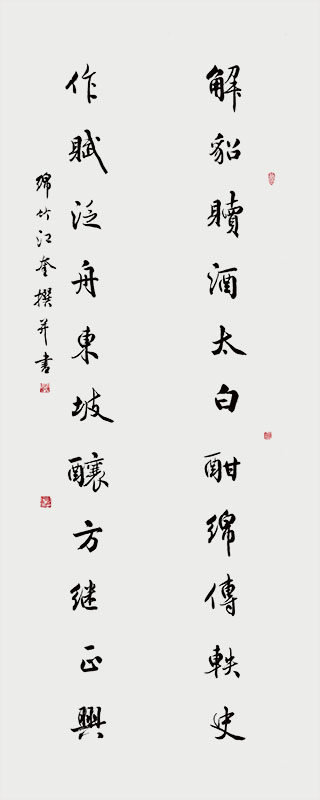 解貂贖酒太白酣綿傳軼史
作賦泛舟東坡釀方继正興
綿竹江奎撰并書